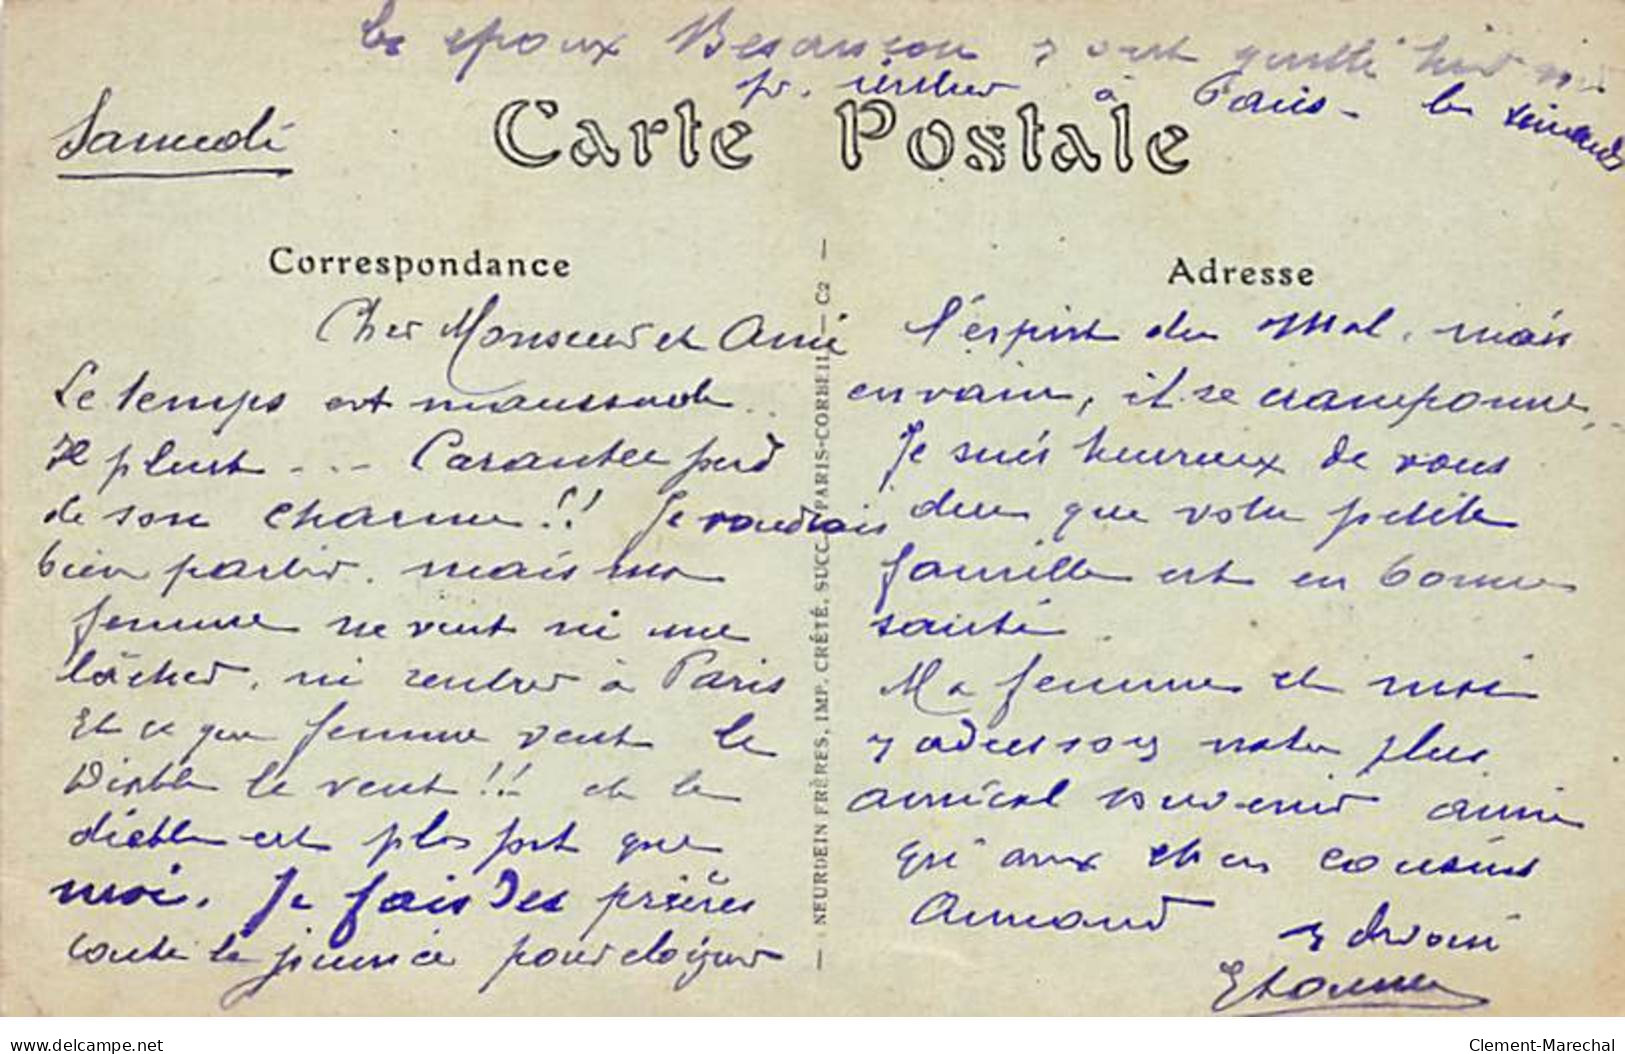 les epoux Besançon s'ont quitté hier
pr. rentrer à Paris - le
Samedi
Carte Postale
Correspondance
Cher Monsieur et Ami
Le temps est maussade..
Il pleut - - - Carantec perd
de son charme!! Je voudrais
bien partir. mais ma
femme ne veut ni me
lâcher, ni rentrer à Paris
Et ce que femme veut le
Diable le veut!! et le
diable est plus fort que
moi. Je fais des prières
toute la journée pour éloigner
NEURDEIN FRÈRES, IMP. CRÉTÉ, SUCC. PARIS-CORBEIL - C2
Adresse
l'esprit du Mal. mais
en vain, il se cramponne..
Je suis heureux de vous
dire que votre petite
famille est en bonne
santé
Ma femme et moi
adressons notre plus
amical souvenir ainsi
qu'aux chers cousins
Armand
Etienne
delcampe.net
Clement-Marechal